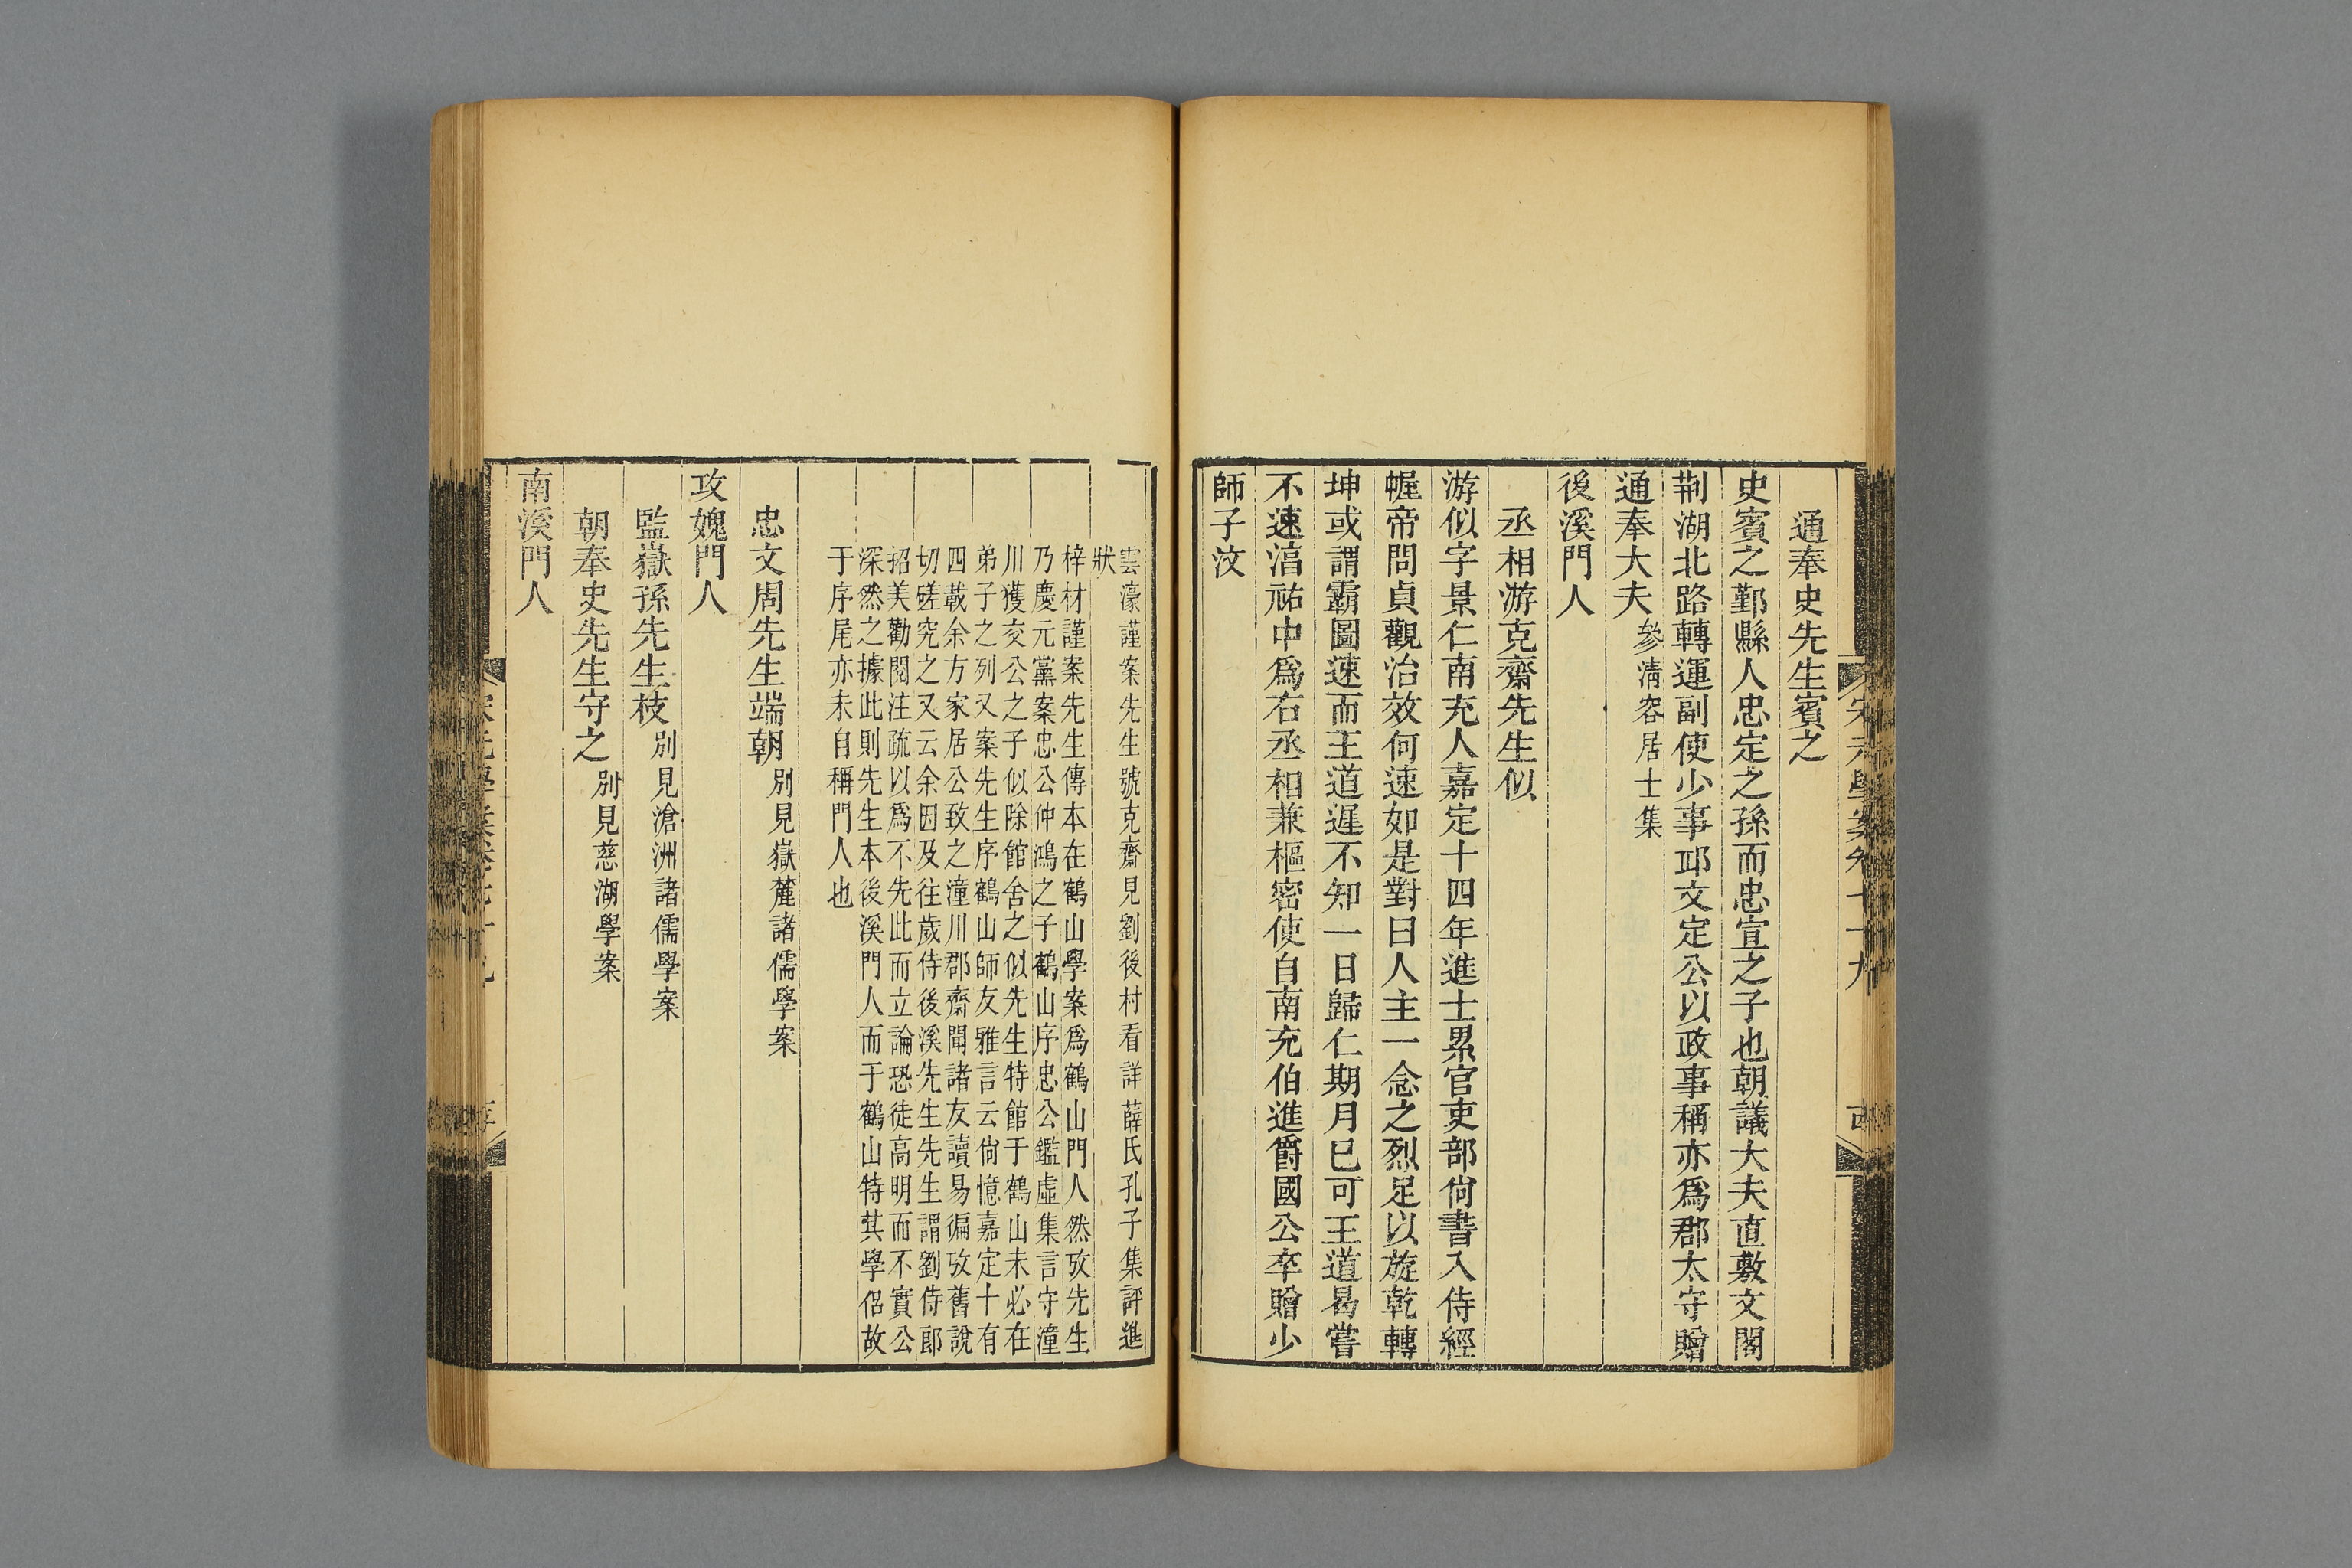 通奉史先生賓之
史賓之鄞縣人忠定之孫而忠宣之子也朝議大夫直敷文閣
荆湖北路轉運副使少事邛文定公以政事稱亦爲郡太守贈
通奉大夫參淸容居士集
後溪門人
丞相游克齋先生似
游似字景仁南充人嘉定十四年進士累官吏部尙書入侍經
幄帝問貞觀治效何速如是對曰人主一念之烈足以旋乾轉
坤或謂霸圖速而王道遲不知一日歸仁期月已可王道曷嘗
不速淳祐中爲右丞相兼樞密使自南充伯進爵國公卒贈少
師子汶
雲濠謹案先生號克齋見劉後村看詳薛氏孔子集評進
狀
梓材謹案先生傳本在鶴山學案爲鶴山門人然攷先生
乃慶元黨案忠公仲鴻之子鶴山序忠公鑑虛集言守潼
川獲交公之子似除館舍之似先生特館于鶴山未必在
弟子之列又案先生序鶴山師友雅言云尙憶嘉定十有
四載余方家居公致之潼川郡齋聞諸友讀易徧攷舊說
切磋究之又云余因及往歲侍後溪先生先生謂劉侍郎
招美勸閱注疏以爲不先此而立論恐徒高明而不實公
深然之據此則先生本後溪門人而于鶴山特其學侶故
于序尾亦未自稱門人也
忠文周先生端朝別見嶽麓諸儒學案
攻媿門人
監嶽孫先生枝別見滄洲諸儒學案
朝奉史先生守之別見慈湖學案
南溪門人